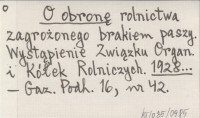 O obronę rolnictwa
zagrożonego brakiem paszy.
Wystąpienie Związku Organ.
i Kółek Rolniczych. 1928...
– Gaz. Podh. 16, nr 42.